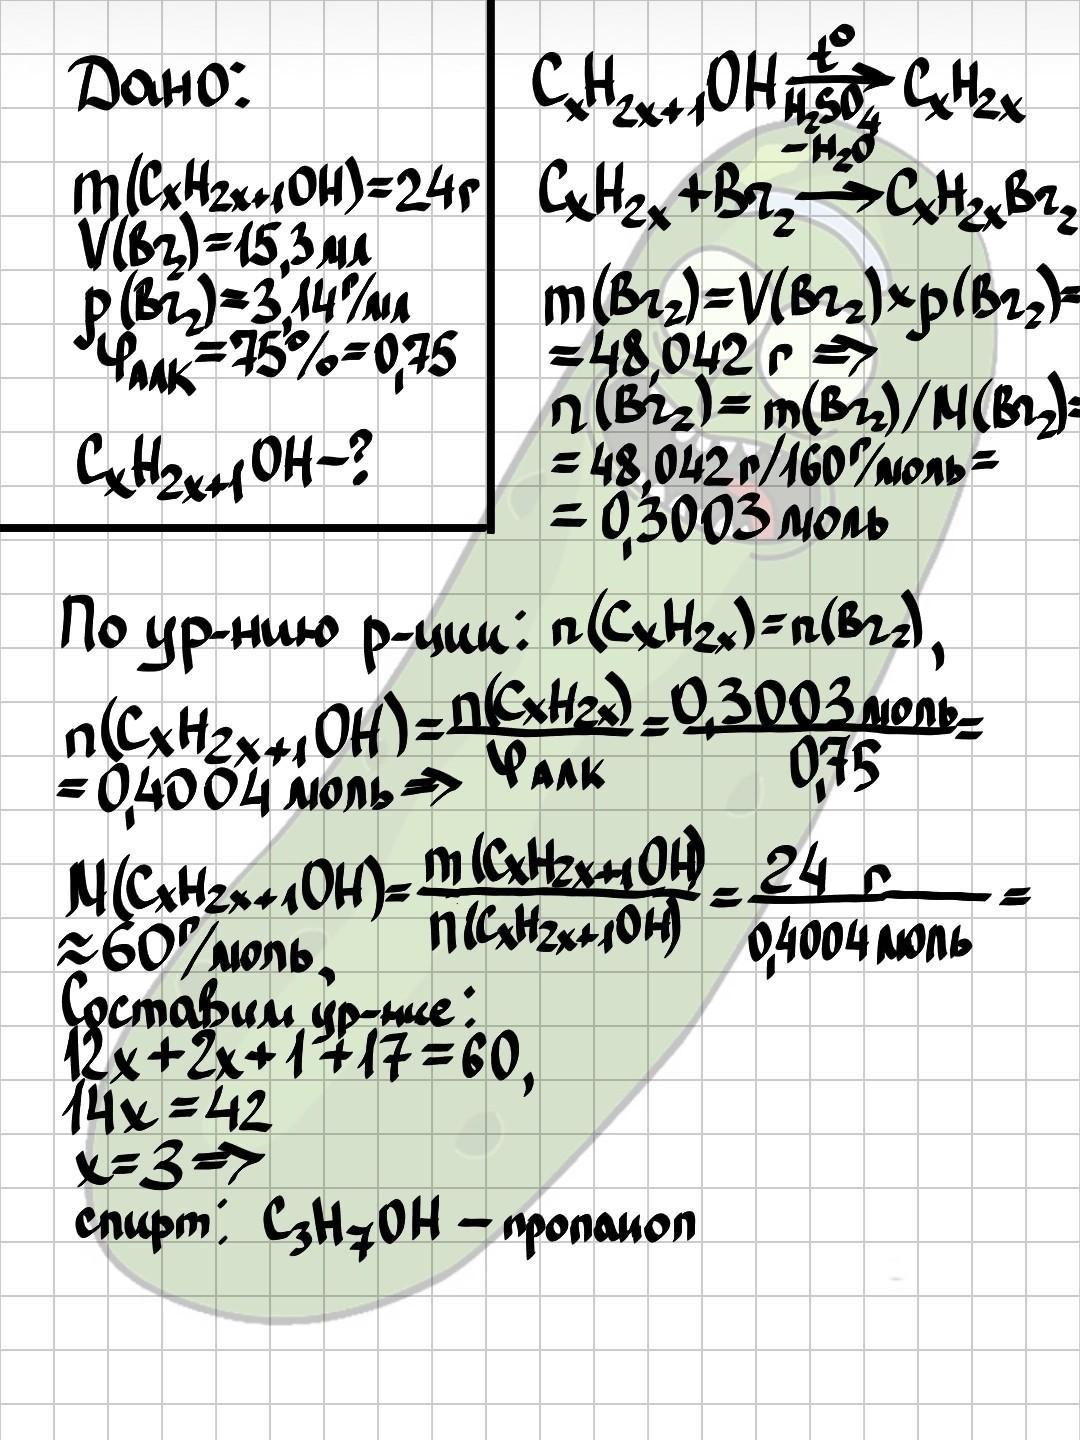 Дано:
m(CₓH₂ₓ₊₁OH)=24г
V(Br₂)=15,3 мл
р(Br₂)=3,14 г/мл
φалк=75%=0,75
CₓH₂ₓ₊₁OH-?
CₓH₂ₓ₊₁OH t° → H₂SO₄ -H₂O CₓH₂ₓ
CₓH₂ₓ+Br₂→CₓH₂ₓBr₂
m(Br₂)=V(Br₂)×р(Br₂)=
=48,042 г =>
n(Br₂)= m(Br₂)/M(Br₂)=
=48,042г/160г/моль=
= 0,3003 моль
По ур-нию р-ции: n(CₓH₂ₓ)=n(Br₂),
n(CₓH₂ₓ₊₁OH)=n(CₓH₂ₓ)/φалк=0,3003 моль/0,75=
= 0,4004 моль =>
M(CₓH₂ₓ₊₁OH)=m(CₓH₂ₓ₊₁OH)/n(CₓH₂ₓ₊₁OH)=24 г/0,4004 моль=
≈60г/моль,
Составим ур-ние:
12x+2x+1+17=60,
14x=42
x=3=>
спирт: C₃H₇OH – пропанол